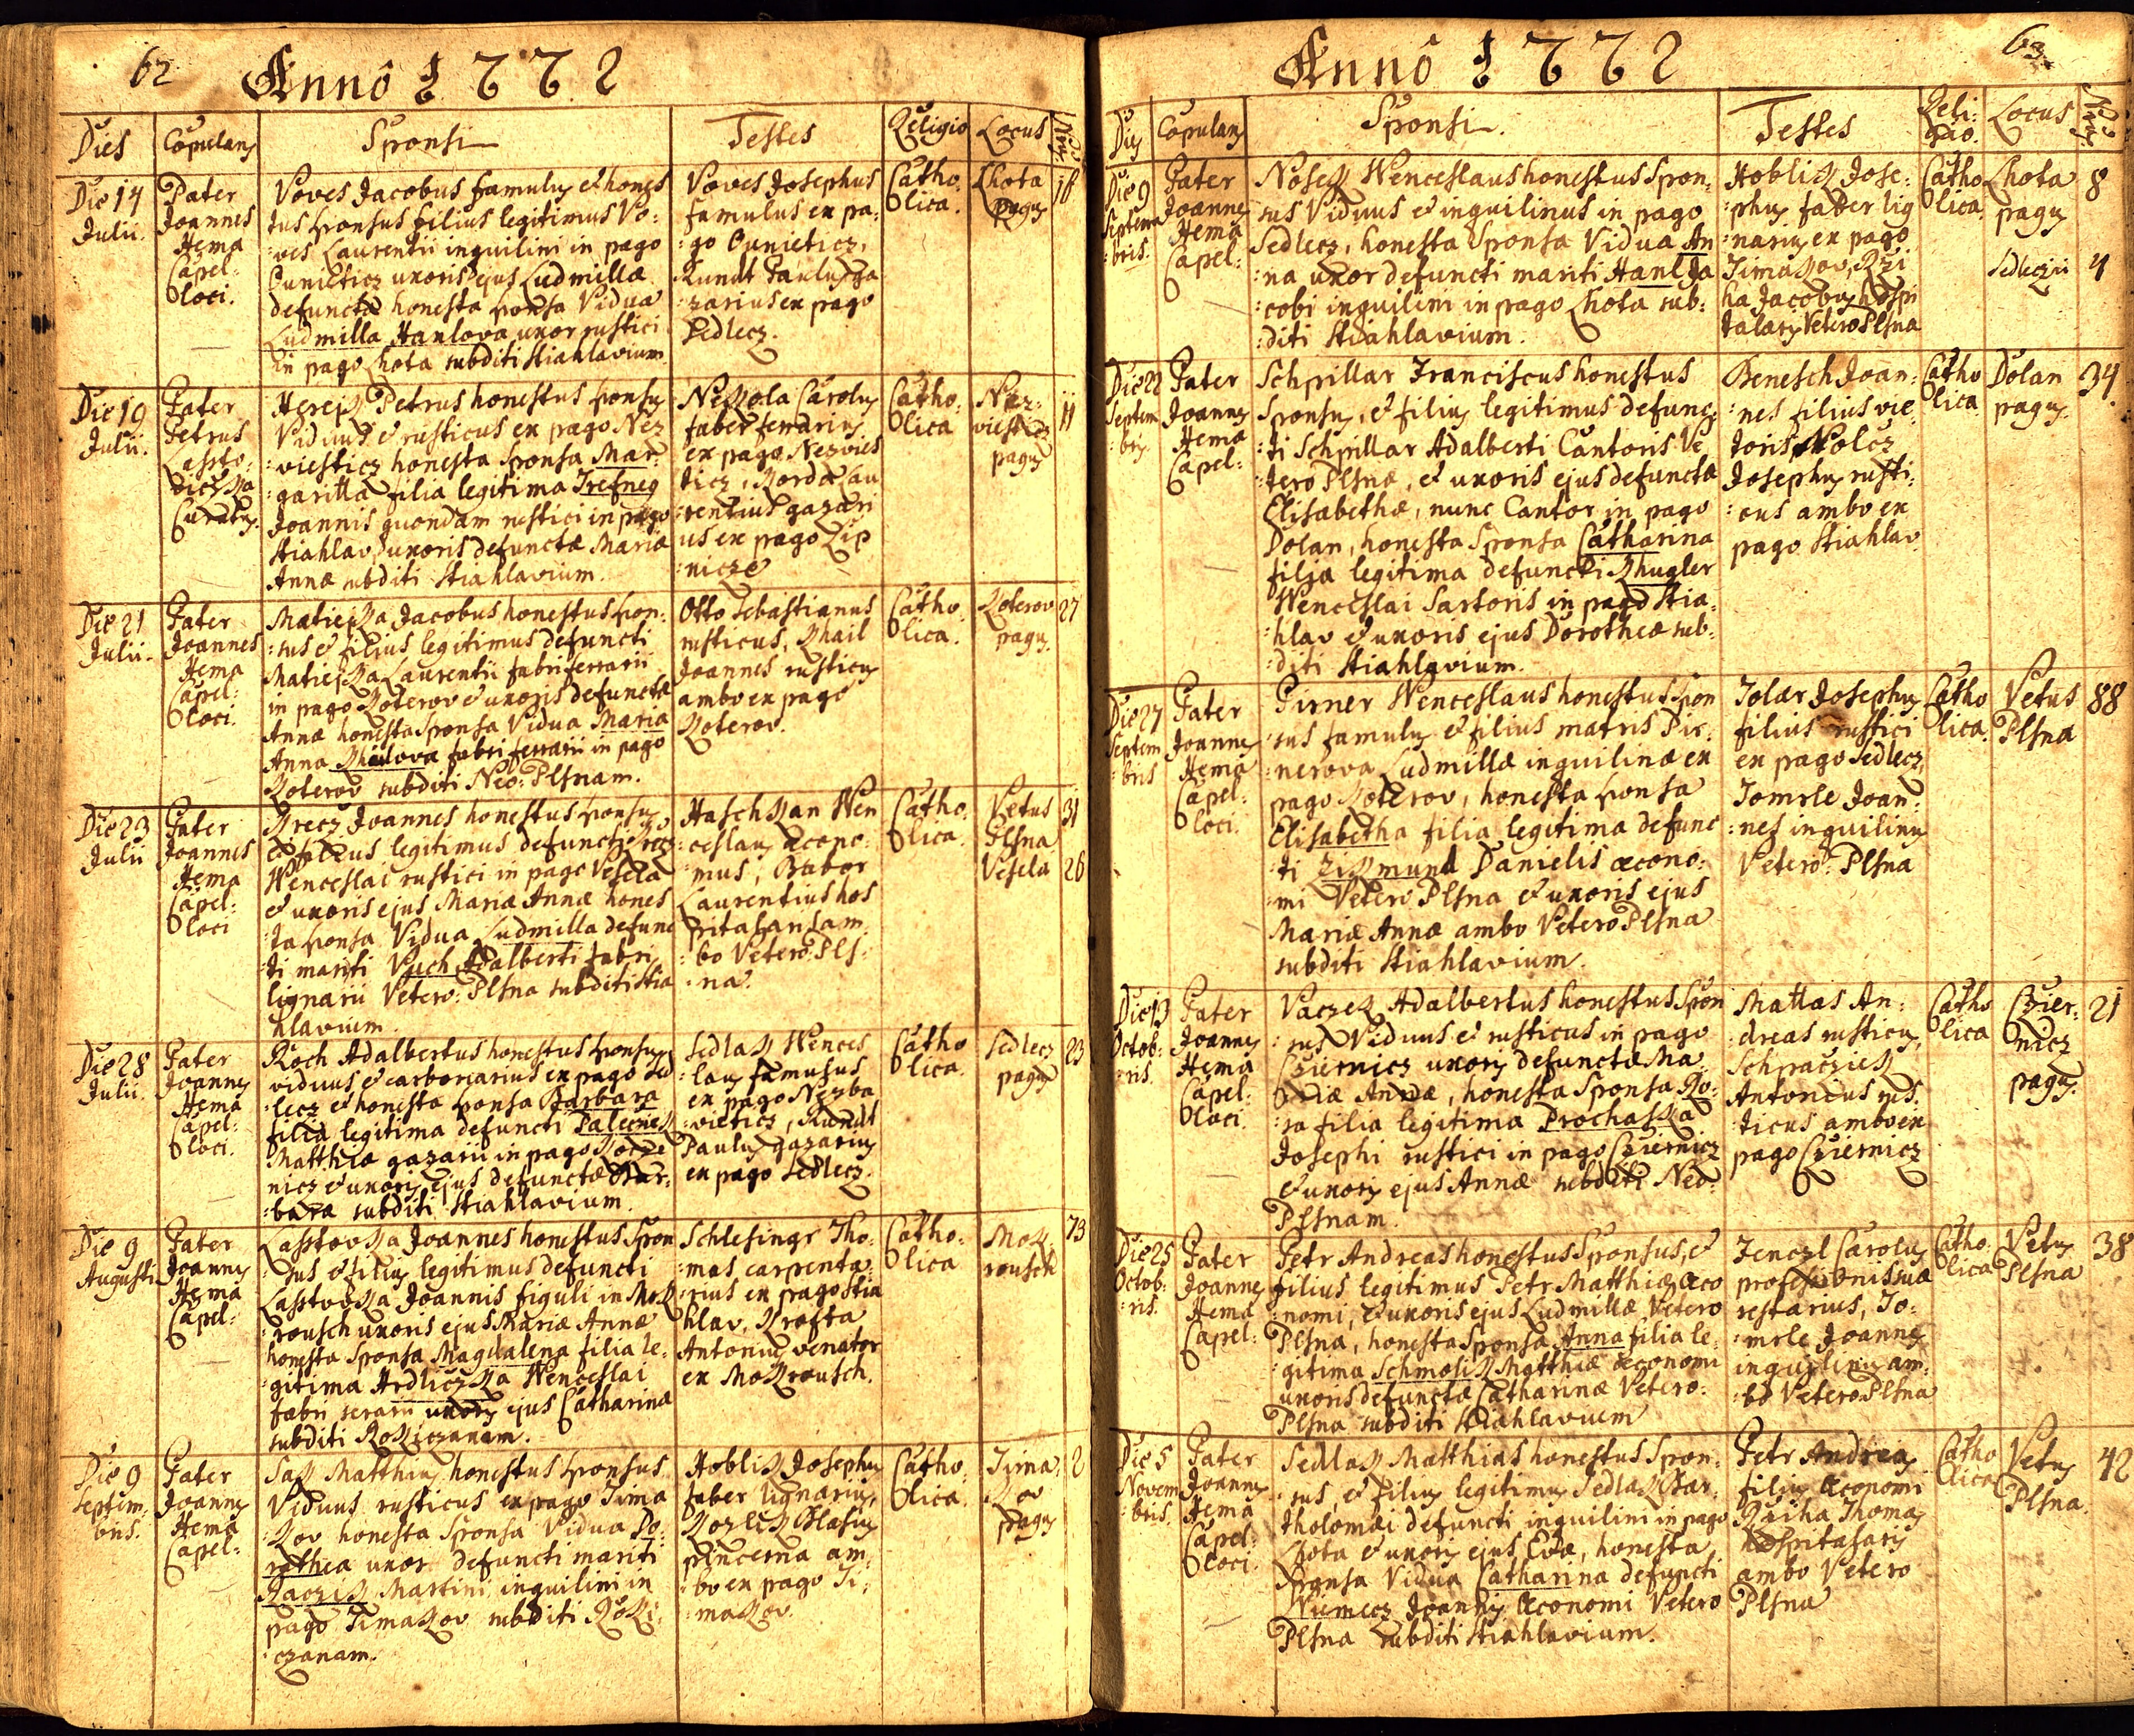 62 Anno 1772
Dies Copulans Sponsi Testes Religio Locus
Die 14
Julii.
Pater
Joannes
Hema
Capel:
loci.
Voves Jacobus famulus et hones
tus sponsus filius legitimus Vo:
:ves Laurentii inquilini in pago
Cunieticz uxoris ejus Ludmillæ
defunctæ honesta sponsa Vidua
Ludmilla Hanlova uxor rustici
in pago Lhota subditi Stiahlavium
Voves Josephus
famulus ex pa:
:go Cunieticz,
Kundt Paulus ga
:zarius ex pago
Sedlecz.
Catho:
lica.
Lhota
pagus
18
Die 19
Julii.
Pater
Petrus
Lasto:
viczka
Curatus.
Hereis Petrus honestus sponsus
Viduus et rusticus ex pago Nez
:viesticz honesta sponsa Mar:
:garitta filia legitima Trefney
Joannis quondam rustici in pago
Stiahlav uxoris defunctæ Mariæ
Annæ subditi Stiahlavium.
Nekola Carolus
faber ferrarius
ex pago Nezvies
ticz, Korda Lau
:rentius gazari
us ex pago Lip
:nicze
Catho:
lica
Nez:
viesticz
pagus
11
Die 21
Julii.
Pater
Joannes
Hema
Capel:
loci.
Matieyka Jacobus honestus spon:
:sus et filius legitimus defuncti
Matieyka Laurentii fabri ferrarii
in pago Koterov et uxoris defunctæ
Annæ honesta sponsa Vidua Maria
Anna Khailova fabri ferrarii in pago
Koterov subditi Neo: Plsnam.
Otto Sebastianus
rusticus, Khail
Joannes rusticus
ambo ex pago
Koterov.
Catho:
lica.
Koterov
pagus.
27
Die 23
Julii
Pater
Joannes
Hema
Capel:
loci
Krecz Joannes honestus sponsus
et filius legitimus defuncti Krecz
Wenceslai rustici in pago Vesela
et uxoris ejus Mariæ Annæ hones
:ta sponsa Vidua Ludmilla defunc
:ti mariti Vuch Adalberti fabri
lignarii Vetero: Plsna subditi Stia
hlavium.
Haschkan Wen
:ceslaus œcono:
:mus, Babor
Laurentius hos
pitalarius am
:bo Vetero: Pls:
:na.
Catho:
lica.
Vetus
Plsna
Vesela
31
26
Die 28
Julii.
Pater
Joannes
Hema
Capel:
loci.
Koch Adalbertus honestus sponsus
viduus et carbonarius ex pago Sed
:lecz et honesta sponsa Barbara
filia legitima defuncti Palecnek
Matthiæ gazarii in pago Kocze
nicz et uxoris ejus defunctæ Bar:
:baræ subditi Stiahlavium.
Sedlak Wences
:laus famulus
ex pago Nezba
:vieticz, Kundt
Paulus gazarius
ex pago Sedlecz.
Catho
lica.
Sedlecz
pagus
23
Die 9
Augusti
Pater
Joannes
Hema
Capel:
Lastovka Joannes honestus Spon
:sus et filius legitimus defuncti
Lastovka Joannis figuli in Mok
:rousch uxoris ejus Mariæ Annæ
honesta Sponsa Magdalena filia le:
:gitima Hrdliczka Wenceslai
fabri serarii uxoris ejus Catharinæ
subditi Rokiczanam.
Schlesingr Tho:
:mas carpenta:
:rius ex pago Stia
hlav, Krofta
Antonius venator
ex Mokrousch.
Catho:
lica
Mok:
rousch
73
Die 9
Septem:
bris.
Pater
Joannes
Hema
Capel:
Sak Matthius honestus sponsus
Viduus rusticus ex pago Tima
:kov honesta Sponsa Vidua Do:
rothea uxor defuncti mariti
Raczik Martini inquilini in
pago Timakov subditi Roki:
:czanam.
Hoblik Josephus
faber lignarius,
Kozlik Blasius
pincerna am:
:bo ex pago Ti:
:makov.
Catho:
lica.
Tima:
kov
pagus
2
Anno 1772 63.
Dies Copulans Sponsi. Testes Reli:
gio. Locus
Die 9
Septem
:bris.
Pater
Joannes
Hema
Capel:
Nosek Wenceslaus honestus Spon:
sus Viduus et inquilinus in pago
Sedlecz, honesta Sponsa Vidua An
:na uxor defuncti mariti Hanl Ja
:cobi inquilini in pago Lhota sub:
:diti Stiahlavium.
Hoblik Jose:
:phus faber lig
:narius ex pago
Timakov, Rzi
ha Jacobus hospi
talarius Vetero Plsna
Catho
lica.
Lhota
pagus
Sedleczii
8
4
Die 22
Septem
:bris.
Pater
Joannes
Hema
Capel:
Schpillar Franciscus honestus
Sponsus, et filius legitimus defunc:
:ti Schpillar Adalberti Cantoris Ve
:tero Plsnæ, et uxoris ejus defunctæ
Elisabethæ, nunc Cantor in pago
Dolan, honesta Sponsa Catharina
filia legitima defuncti Khugler
Wenceslai Sartoris in pago Stia:
:hlav et uxoris ejus Dorotheæ sub:
:diti Stiahlavium.
Benesch Joan:
:nes filius vie
toris Kolcz
Josephus rusti:
:cus ambo ex
pago Stiahlav
Catho
lica.
Dolan
pagus.
34.
Die 27
Septem
:bris
Pater
Joannes
Hema
Capel:
loci.
Pirner Wenceslaus honestus Spon
sus famulus et filius matris Pir:
:nerova Ludmillæ inquilinæ ex
pago Koterov, honesta sponsa
Elisabetha filia legitima defunc
:ti Zikmund Danielis œcono:
:mi Vetero Plsna et uxoris ejus
Mariæ Annæ ambo Vetero Plsna
subditi Stiahlavium.
Tolar Josephus
filius rustici
ex pago Sedlecz,
Tomrle Joan:
:nes inquilinus
Vetero: Plsna
Catho
lica.
Vetus
Plsna
88
Die 13
Octob:
ris.
Pater
Joannes
Hema
Capel:
loci.
Vaczek Adalbertus honestus Spon
:sus Viduus et rusticus in pago
Cziernicz uxoris defunctæ Ma
riæ Annæ, honesta Sponsa Ro:
:sa filia legitima Prochaska
Josephi rustici in pago Cziernicz
et uxoris ejus Annæ subditi Neo:
Plsnam.
Mattas An:
:dreas rusticus,
Schpacziek
Antonius rus
:ticus ambo ex
pago Cziernicz
Catho
lica
Czier:
nicz
pagus.
21
Die 25
Octob:
ris.
Pater
Joannes
Hema
Capel:
Petr Andreas honestus Sponsus, et
filius legitimus Petr Matthiæ œco
:nomi, et uxoris ejus Ludmillæ Vetero
Plsna, honesta Sponsa Anna filia le:
:gitima Schmolik Matthiæ œconomi
uxoris defunctæ Catharinæ Vetero:
Plsna subditi Stiahlavium
Jenczl Carolus
professionis suæ
restarius, To:
:mrle Joannes
inquilinus am:
:bo Vetero Plsna
Catho:
lica
Vetus
Plsna
38
Die 5
Novem
:bris.
Pater
Joannes
Hema
Capel:
loci.
Sedlak Matthias honestus Spon:
:sus, et filius legitimus Sedlak Bar:
tholomæi defuncti inquilini in pago
Lhota et uxoris ejus Evæ, honesta
Sponsa Vidua Catharina defuncti
Niemecz Joannis Œconomi Vetero
Plsna subditi Stiahlavium.
Petr Andreas
filius Œconomi
Rziha Thomas
hospitalaris
ambo Vetero
Plsna
Catho
lica
Vetus
Plsna.
42